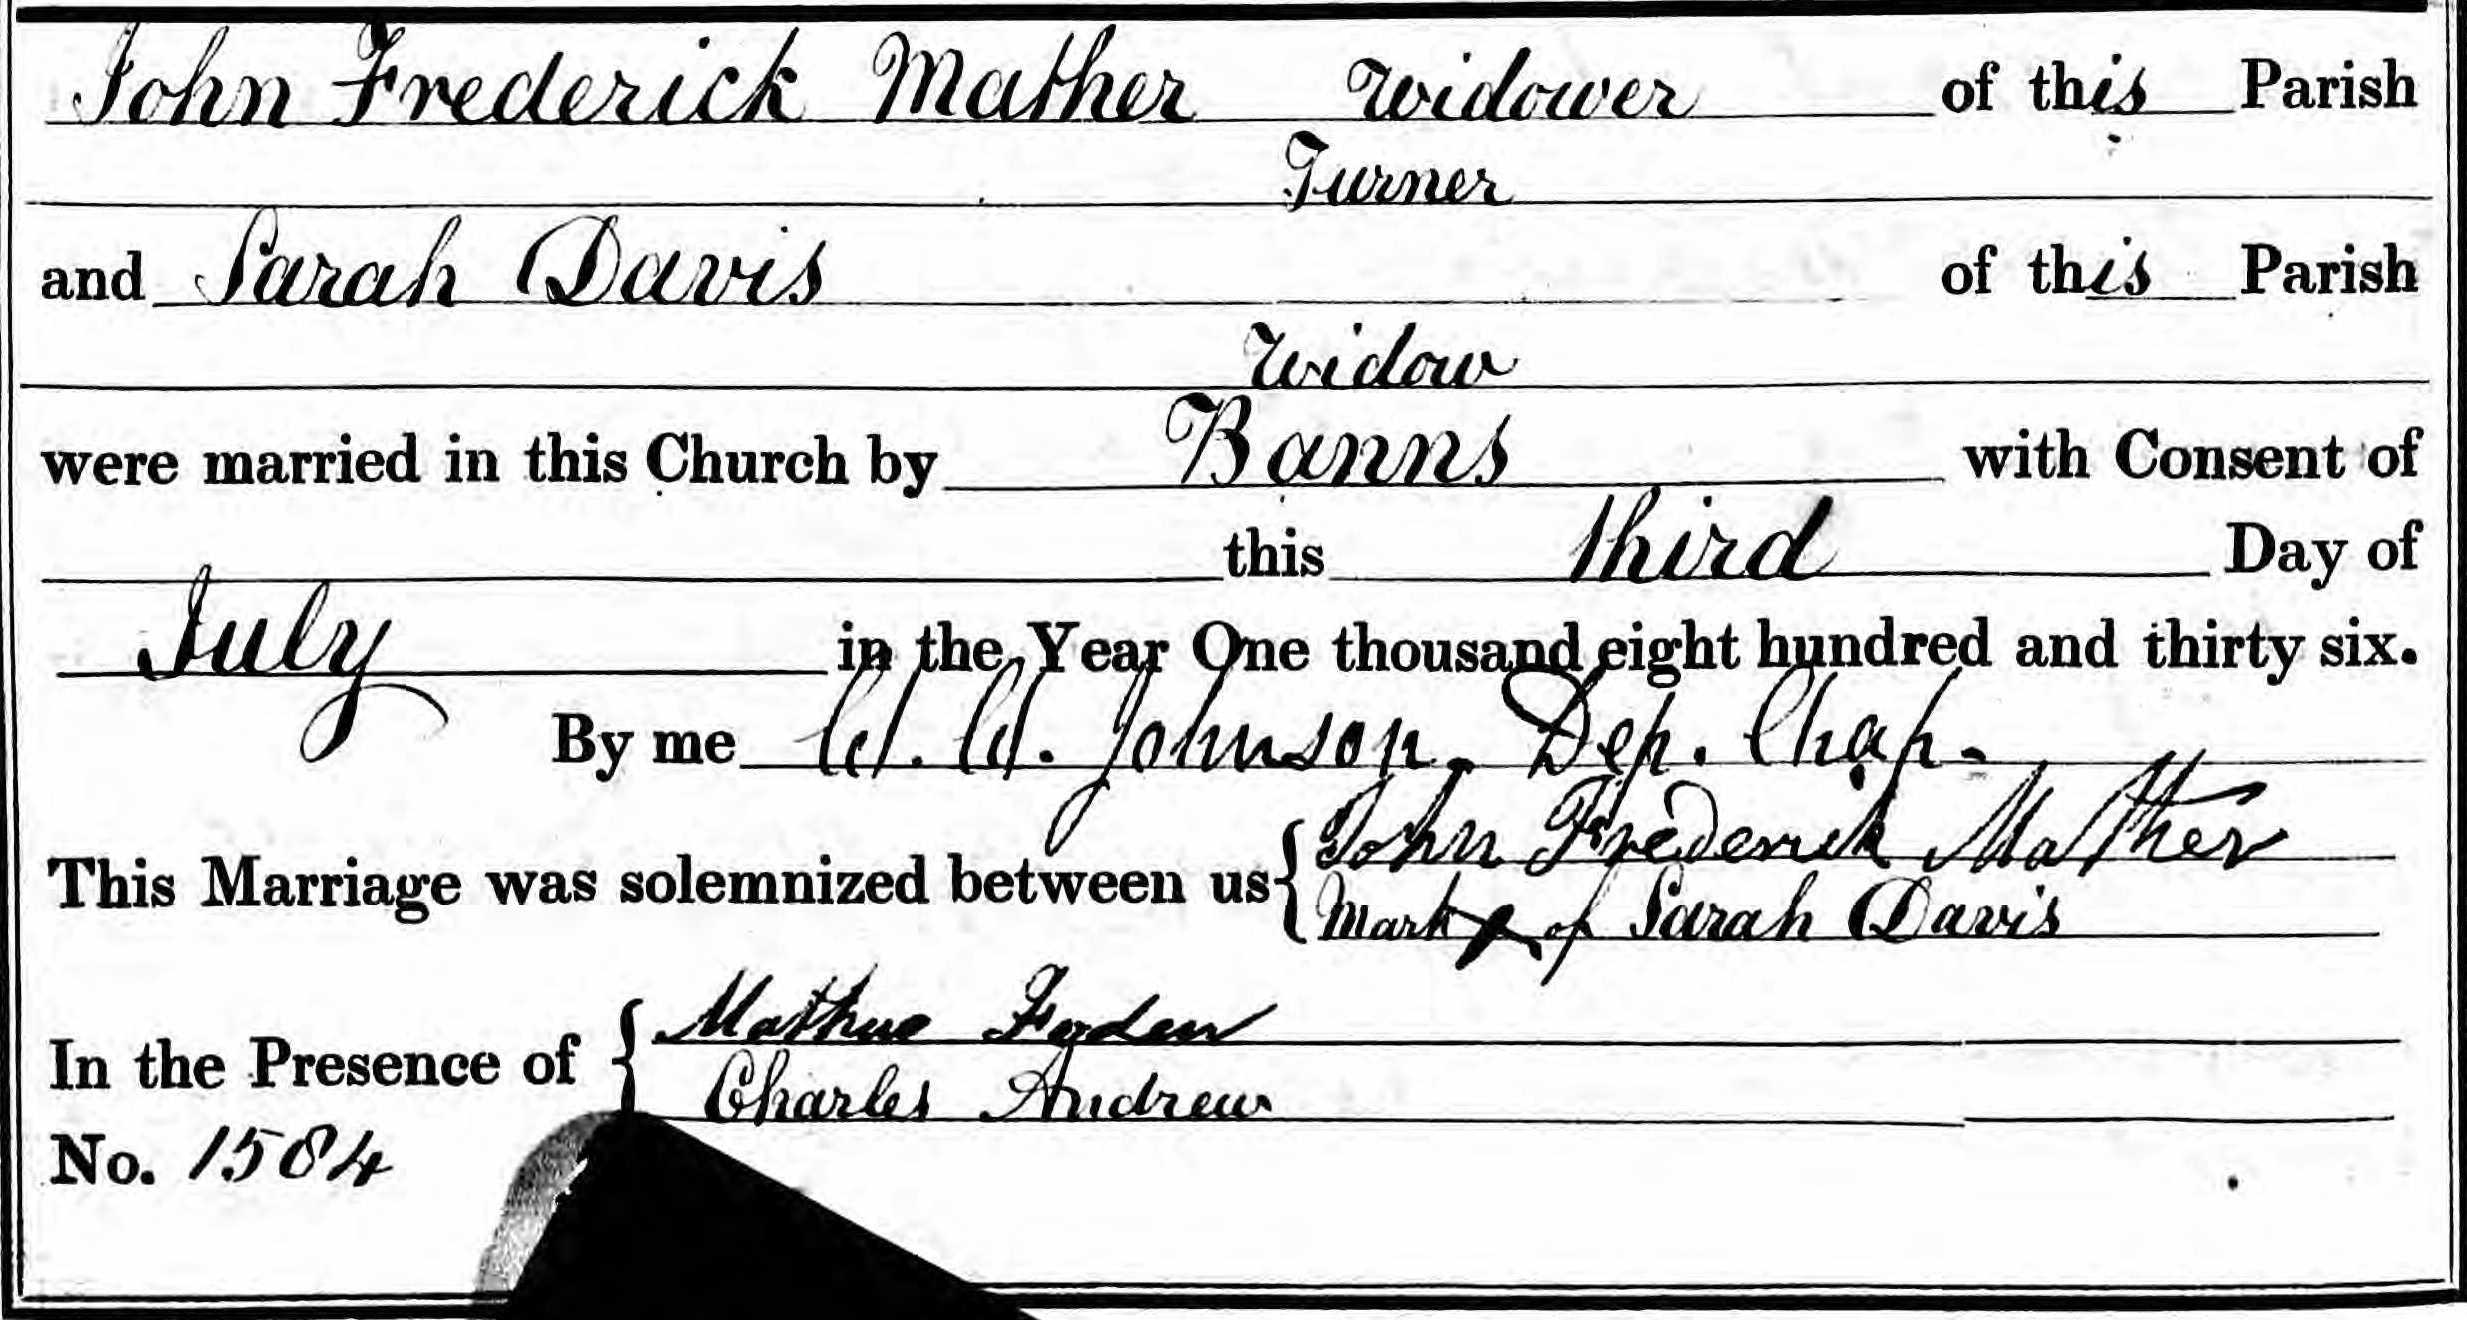 John Frederick Mather Widower of this Parish
Turner
and Sarah Davis of this Parish
Widow
were married in this Church by Banns with Consent of
this third Day of
July in the Year One thousand eight hundred and thirty six.
By me W. W. Johnson. Dep. Chap.
This Marriage was solemnized between us John Frederick Mather
Mark X of Sarah Davis
In the Presence of Foden
Charles Andrew
No. 1584